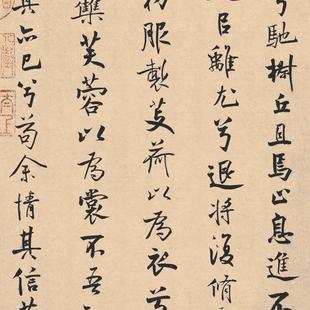 兮馳椒丘且焉止息進不
㠯離尤兮退將復脩
服製芰荷以為衣兮
集芙蓉以為裳不吾
其亦已兮苟余情其信芳